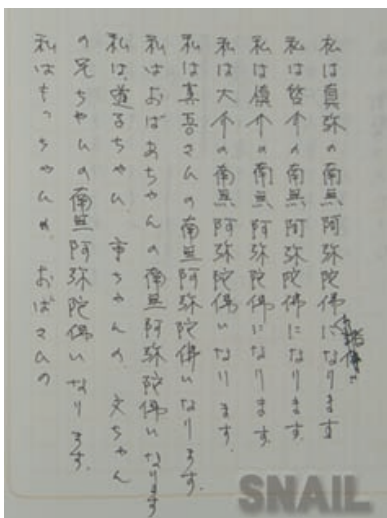 私は真弥の南無阿弥陀佛になります
私は啓介の南無阿弥陀佛になります
私は慎介の南無阿弥陀佛になります
私は大介の南無阿弥陀佛になります
私は真吾さんの南無阿弥陀佛になります
私はおばあちゃんの南無阿弥陀佛になります
私は道子ちゃん 幸ちゃんの 文ちゃん
の兄ちゃんの南無阿弥陀佛になります
私はもっちゃんの おばさんの
SNAIL